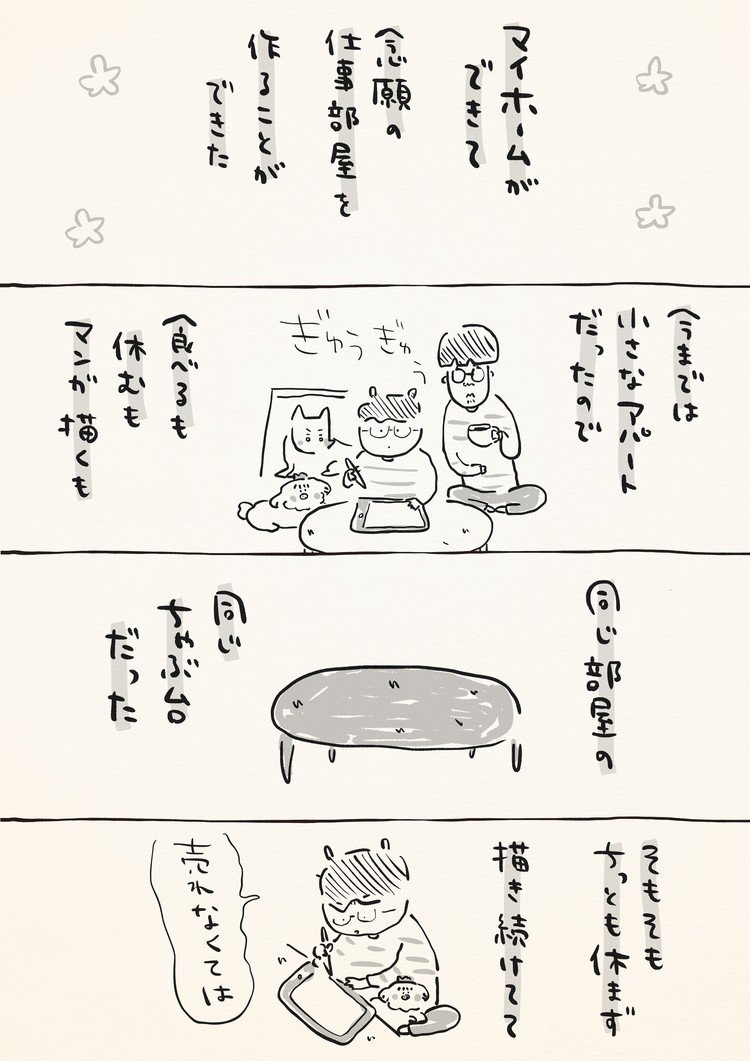 マイホームが
できて
念願の
仕事部屋を
作ることが
できた
今までは
小さなアパート
だったので
ぎゅうぎゅう
食べるも
休むも
マンガ描くも
同じ部屋の
同じ
ちゃぶ台
だった
そもそも
ちっとも休まず
描き続けてて
売れなくては